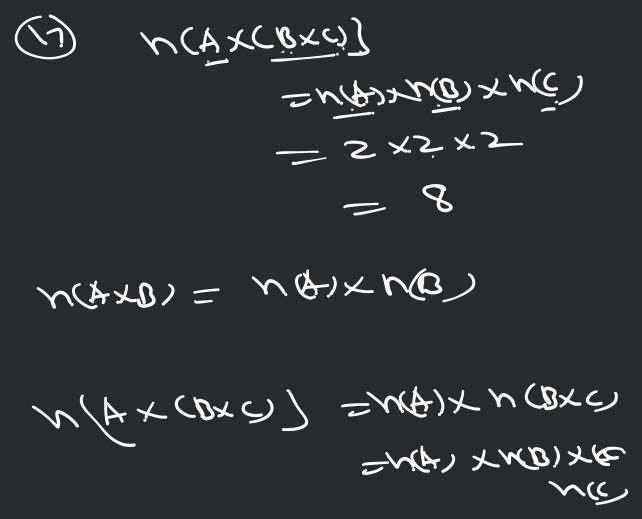 17 n(A×(B×C)]
=n(A)×n(B)×n(C)
= 2 ×2 ×2
= 8
n(A×B) = n(A)×n(B)
n[A×(B×C)] =n(A)× n(B×C)
=n(A) ×n(B)×
n(C